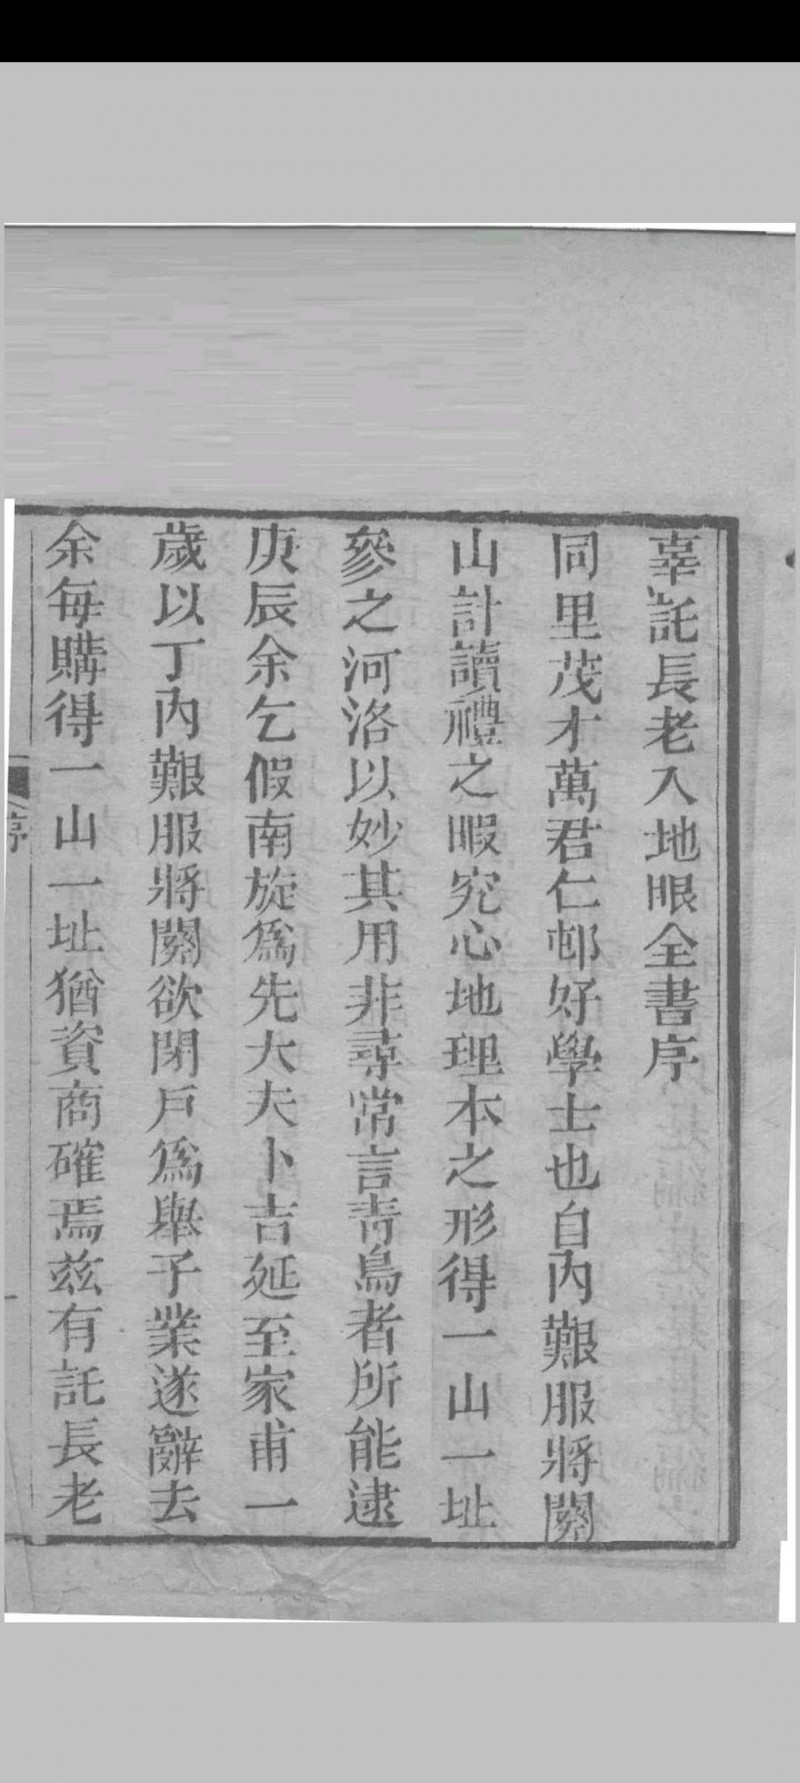 辜託長老入地眼全書序
同里茂才萬君仁邨好學士也自內艱服將闋
山計讀禮之暇究心地理本之形得一山一址
參之河洛以妙其用非尋常言青烏者所能逮
庚辰余乞假南旋爲先大夫卜吉延至家甫一
歲以丁內艱服將闋欲閉戶爲舉子業遂辭去
余每購得一山一址猶資商確焉茲有託長老
序